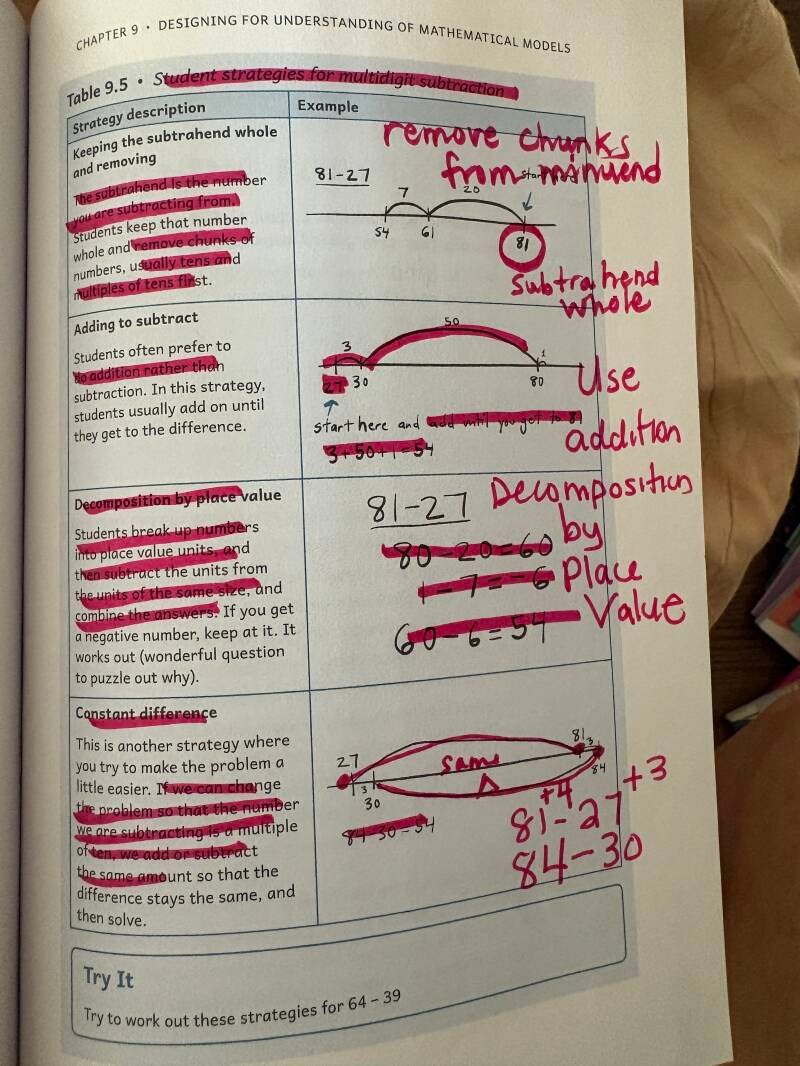 CHAPTER 9 · DESIGNING FOR UNDERSTANDING OF MATHEMATICAL MODELS
Table 9.5 • Student strategies for multidigit subtraction
Strategy description
Example
Keeping the subtrahend whole
and removing
The subtrahend is the number
you are subtracting from.
Students keep that number
whole and remove chunks of
numbers, usually tens and
multiples of tens first.
remove chunks
from minuend
81-27
start
7
20
54
61
81
subtrahend
whole
Adding to subtract
Students often prefer to
do addition rather than
subtraction. In this strategy,
students usually add on until
they get to the difference.
3
50
1
27
30
80
start here and add until you get to 81
3+50+1=54
Use
addition
Decomposition by place value
Students break up numbers
into place value units, and
then subtract the units from
the units of the same size, and
combine the answers. If you get
a negative number, keep at it. It
works out (wonderful question
to puzzle out why).
81-27
80-20=60
1-7=-6
60-6=54
Decomposition
by
Place
Value
Constant difference
This is another strategy where
you try to make the problem a
little easier. If we can change
the problem so that the number
we are subtracting is a multiple
of ten, we add or subtract
the same amount so that the
difference stays the same, and
then solve.
27
3
30
same
81
3
84
84-30=54
+4
+3
81-27
84-30
Try It
Try to work out these strategies for 64 – 39